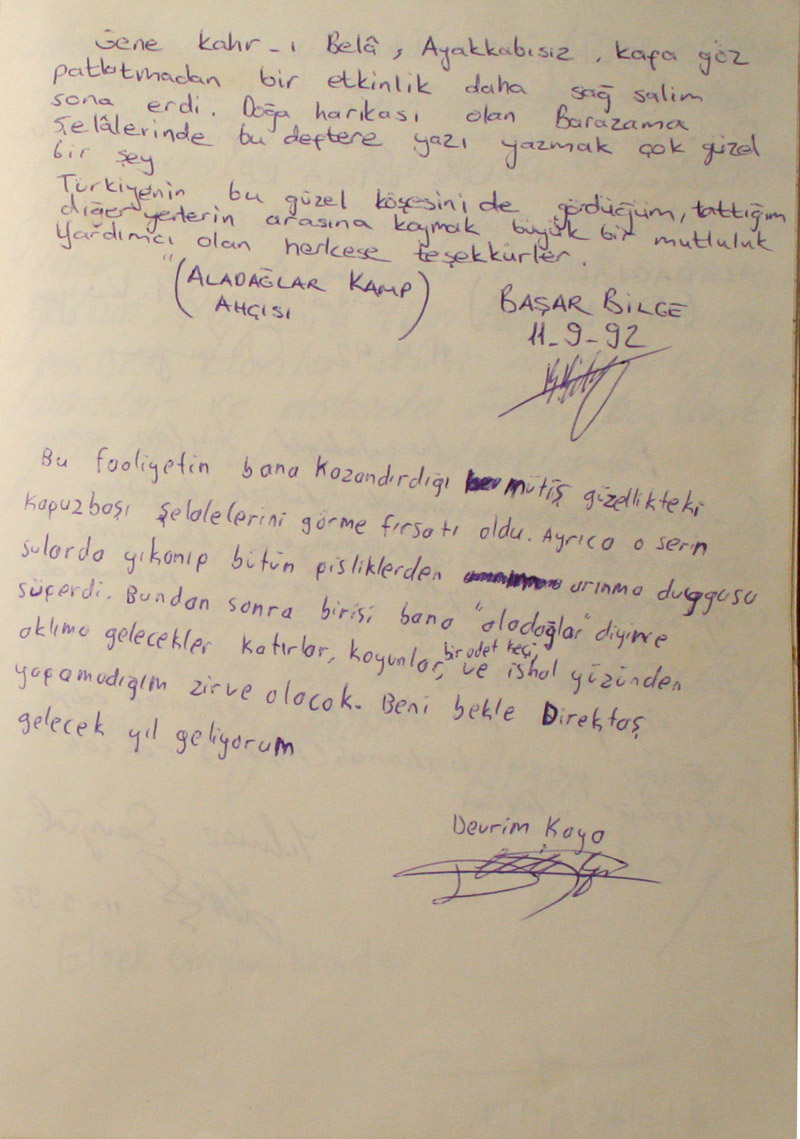 Gene kahr-ı Belâ, Ayakkabısız, kafa göz
patlatmadan bir etkinlik daha sağ salim
sona erdi. Doğa harikası olan Barazama
Şelâlerinde bu deftere yazı yazmak çok güzel
bir şey
Türkiyenin bu güzel köşesini de gördüğüm, tattığım
diğer yerlerin arasına koymak büyük bir mutluluk
Yardımcı olan herkese teşekkürler.
(ALADAĞLAR KAMP
AHÇISI)
BAŞAR BİLGE
11-9-92
Bu faaliyetin bana kazandırdığı mütiş güzellikteki
Kapuzbaşı şelalelerini görme fırsatı oldu. Ayrıca o serin
sularda yıkanıp bütün pisliklerden arınma duygusu
süperdi. Bundan sonra birisi bana "aladağlar" diyince
aklıma gelecekler katırlar, koyunlar, bir adet keçi, ve ishal yüzünden
yapamadığım zirve olacak. Beni bekle Direktaş
gelecek yıl geliyorum
Devrim Kaya